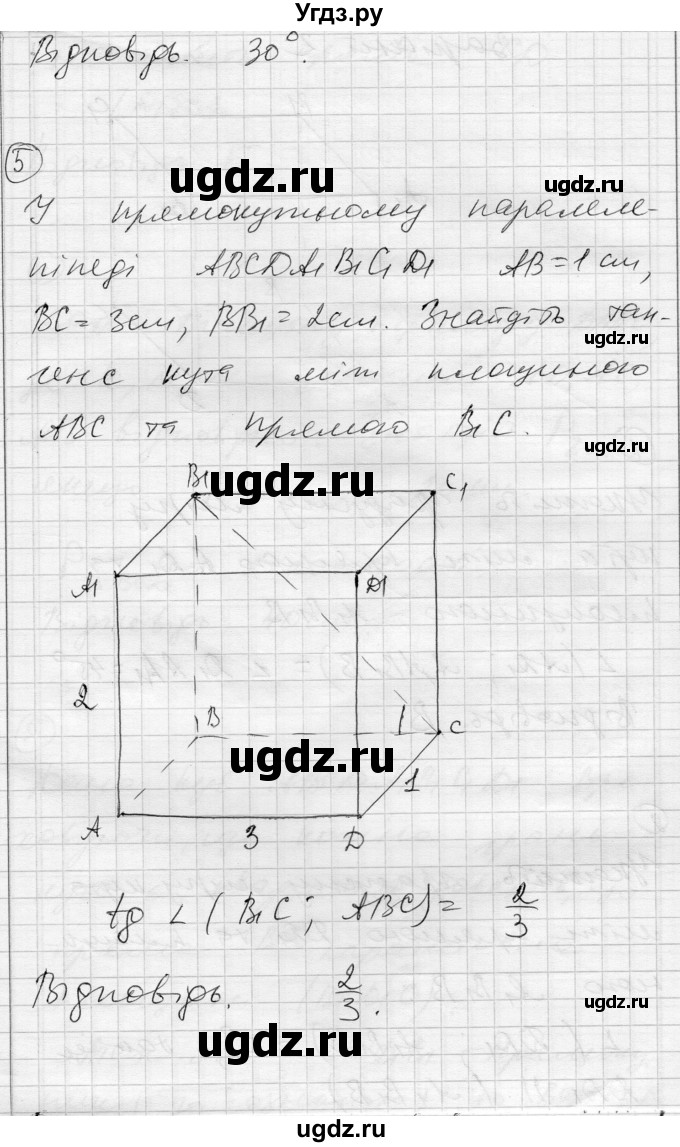 Угдз.ру
Відповідь. 30°.
5
ugdz.ru
ugdz.ru
У прямокутному паралеле-
піпеді ABCDA1B1C1D1 AB = 1 см,
BC = 3см, BB1 = 2см. Знайдіть тан-
ugdz.ru
генс кута між площиною
ABC та прямою B1C.
ugdz.ru
B1 ugdz.ru C1
A1 D1
2
B C
ugdz.ru
1
A 3 D
tg ∠ (B1C; ABC) = 2/3
Відповідь. 2/3.
ugdz.ru
ugdz.ru
ugdz.ru